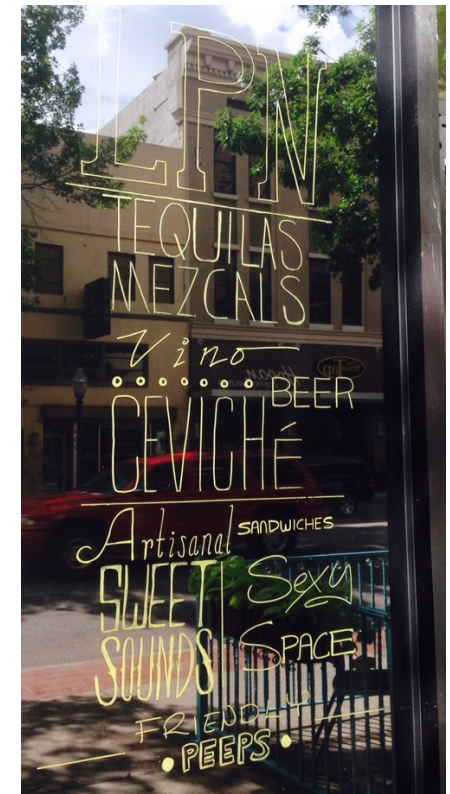 LPN
TEQUILAS
MEZCALS
Vino
BEER
CEVICHÉ
Artisanal SANDWICHES
SWEET Sexy
SOUNDS SPACE
FRIENDLY
PEEPS